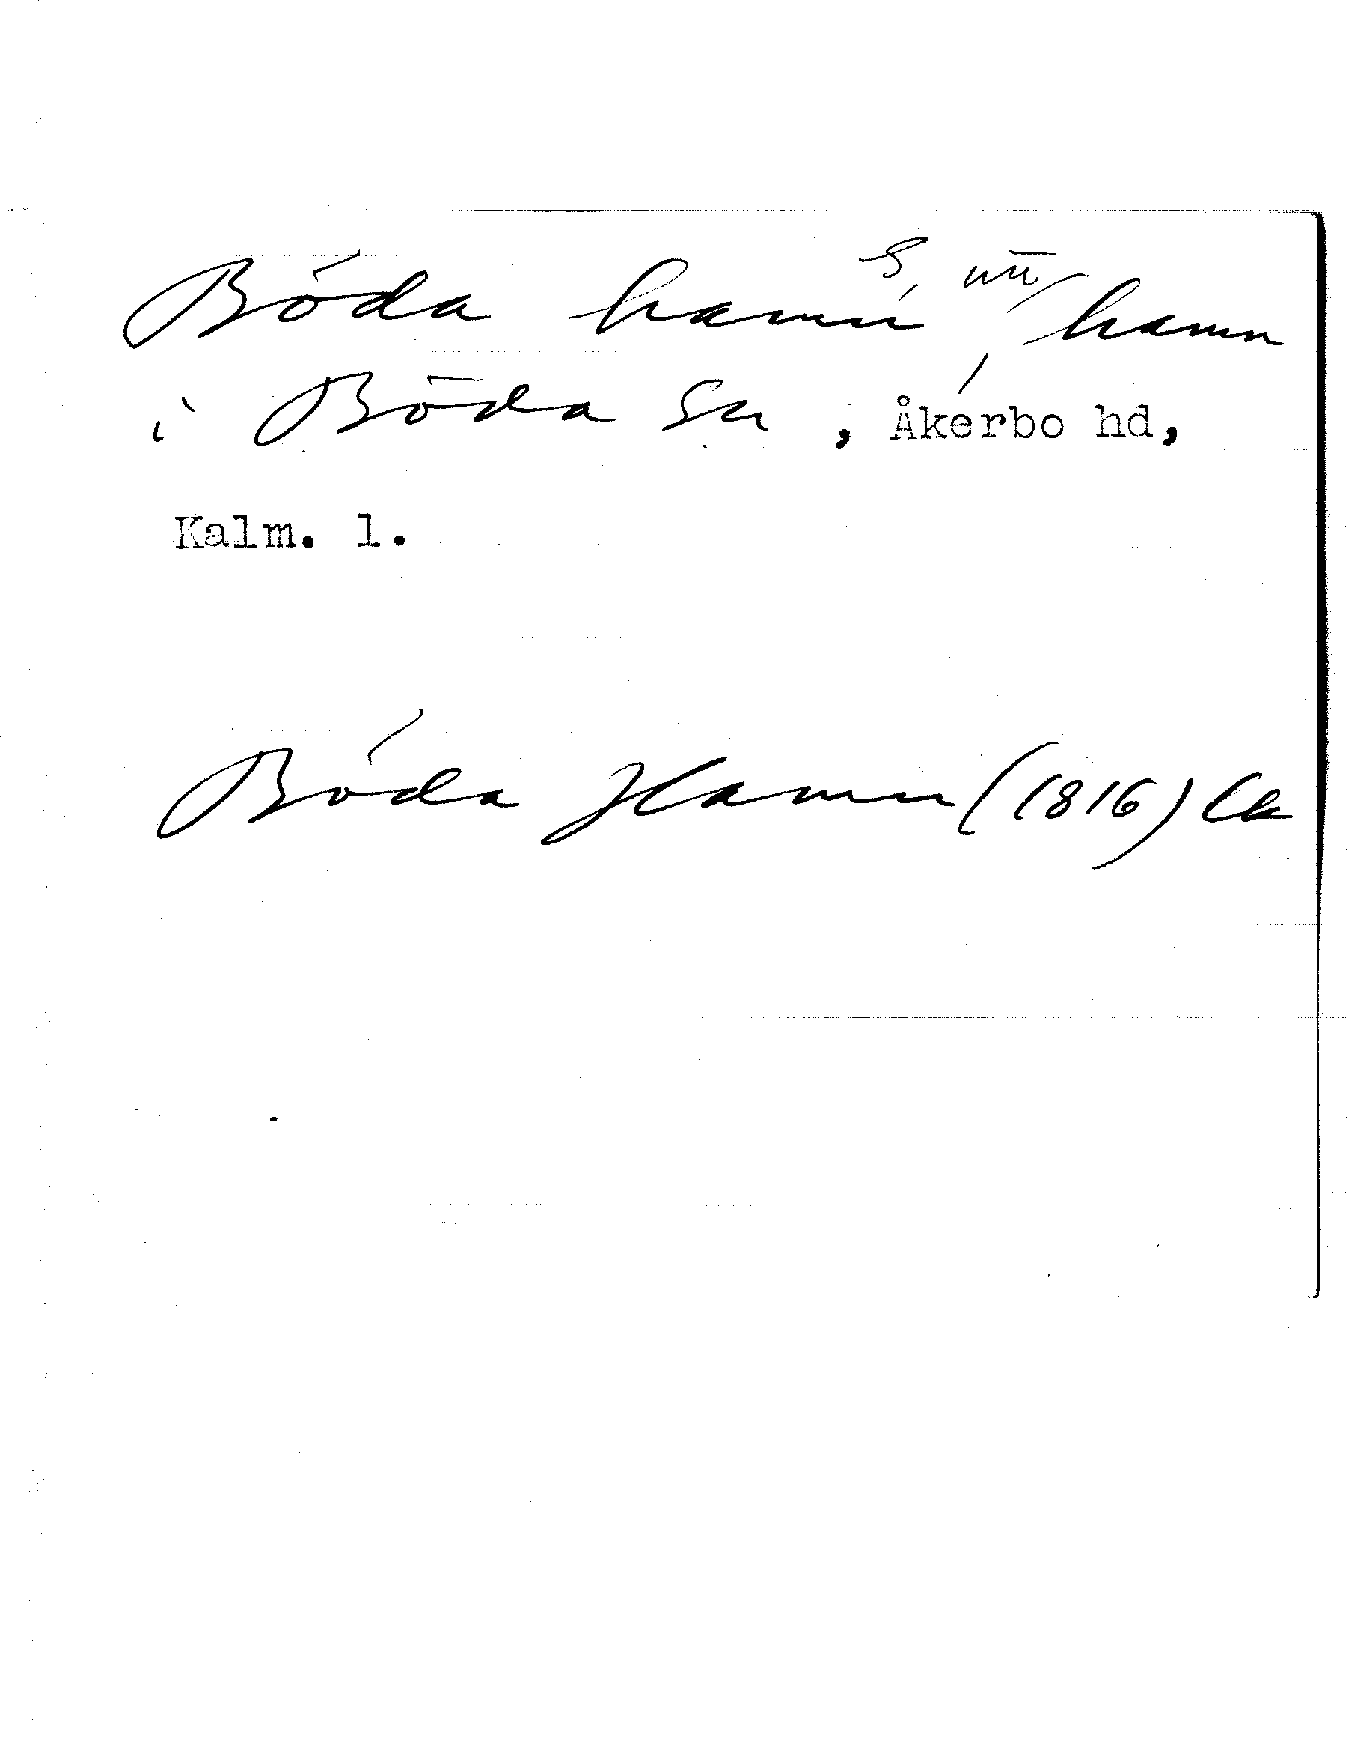 Böda hamn, hamn
i Böda sn, Åkerbo hd,
Kalm. l.
Böda Hamn (1816) Ck